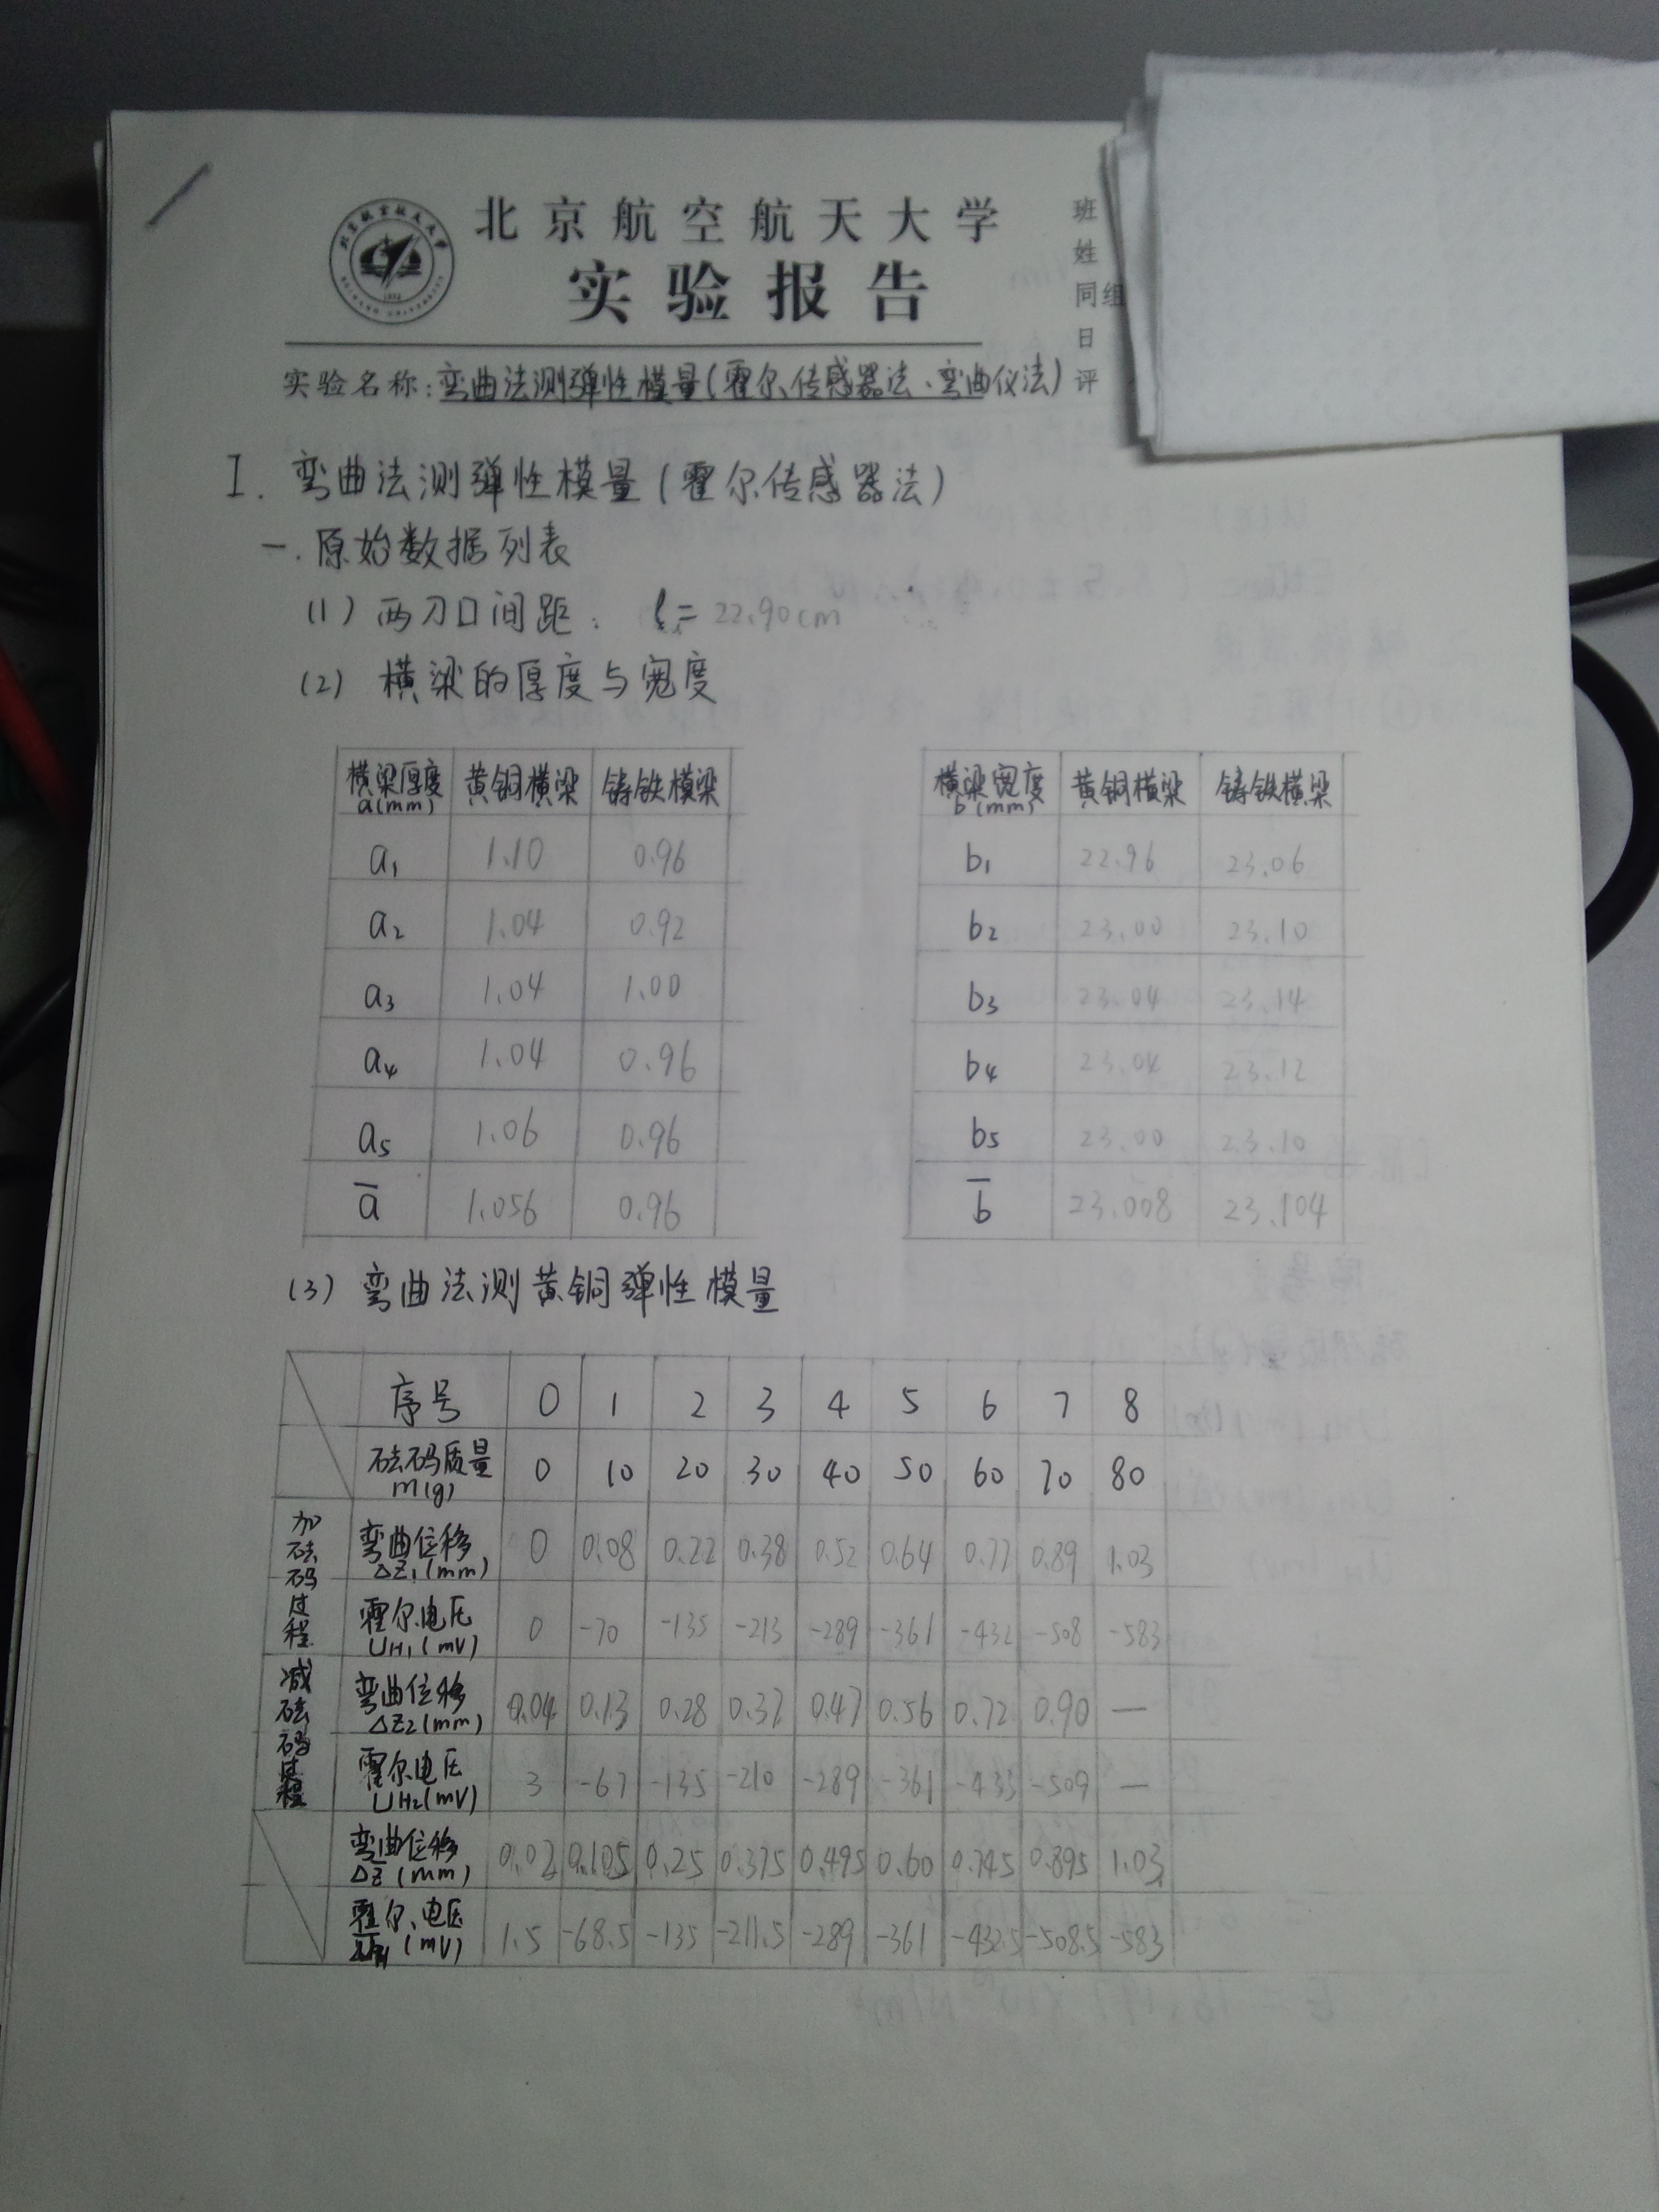 北京航空航天大学
实验报告
班
姓
同组
日
评
实验名称:弯曲法测弹性模量(霍尔传感器法、弯曲仪法)
I. 弯曲法测弹性模量(霍尔传感器法)
一.原始数据列表
(1) 两刀口间距: l = 22.90cm
(2) 横梁的厚度与宽度
横梁厚度a(mm) 黄铜横梁 铸铁横梁
a1 1.10 0.96
a2 1.04 0.92
a3 1.04 1.00
a4 1.04 0.96
a5 1.06 0.96
a̅ 1.056 0.96
横梁宽度b(mm) 黄铜横梁 铸铁横梁
b1 22.96 23.06
b2 23.00 23.10
b3 23.04 23.14
b4 23.04 23.12
b5 23.00 23.10
b̅ 23.008 23.104
(3) 弯曲法测黄铜弹性模量
序号 0 1 2 3 4 5 6 7 8
砝码质量m(g) 0 10 20 30 40 50 60 70 80
加砝码过程
弯曲位移ΔZ1(mm) 0 0.08 0.22 0.38 0.52 0.64 0.77 0.89 1.03
霍尔电压UH1(mV) 0 -70 -135 -213 -289 -361 -432 -508 -583
减砝码过程
弯曲位移ΔZ2(mm) 0.04 0.13 0.28 0.37 0.47 0.56 0.72 0.90 —
霍尔电压UH2(mV) 3 -67 -135 -210 -289 -361 -433 -509 —
弯曲位移ΔZ̅(mm) 0.02 0.105 0.25 0.375 0.495 0.60 0.745 0.895 1.03
霍尔电压 (mV) 1.5 -68.5 -135 -211.5 -289 -361 -432.5 -508.5 -583